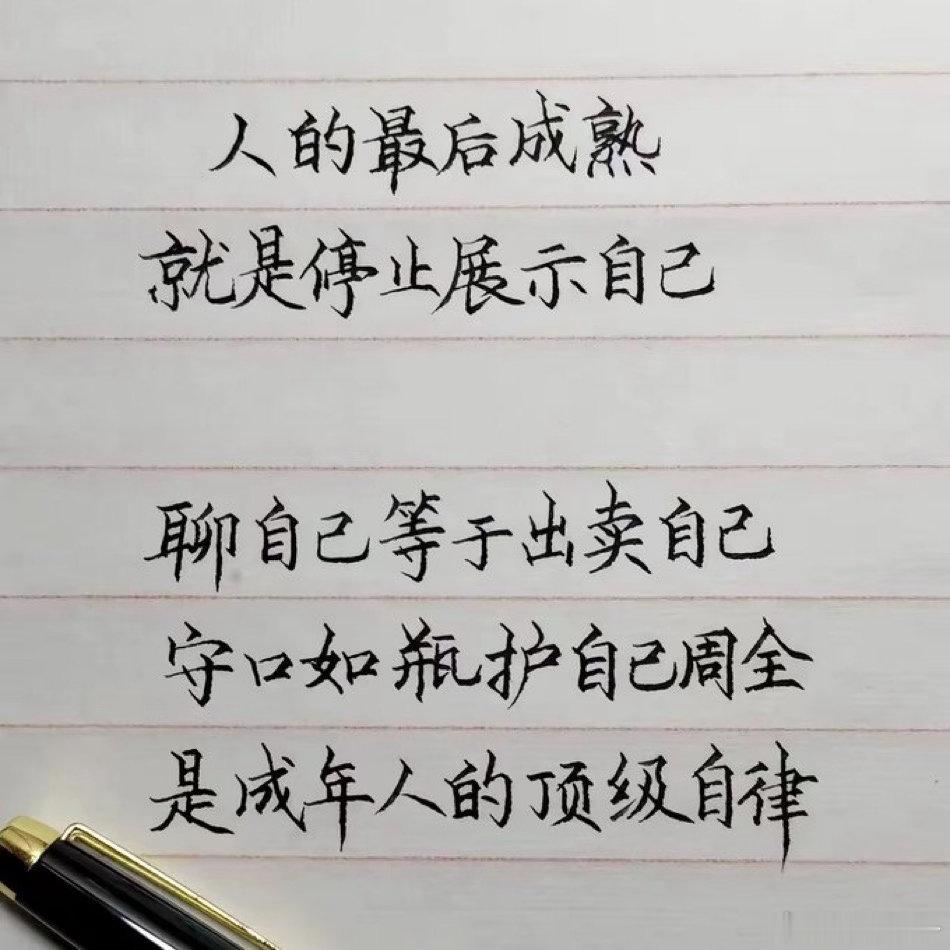 人的最后成熟
就是停止展示自己
聊自己等于出卖自己
守口如瓶护自己周全
是成年人的顶级自律